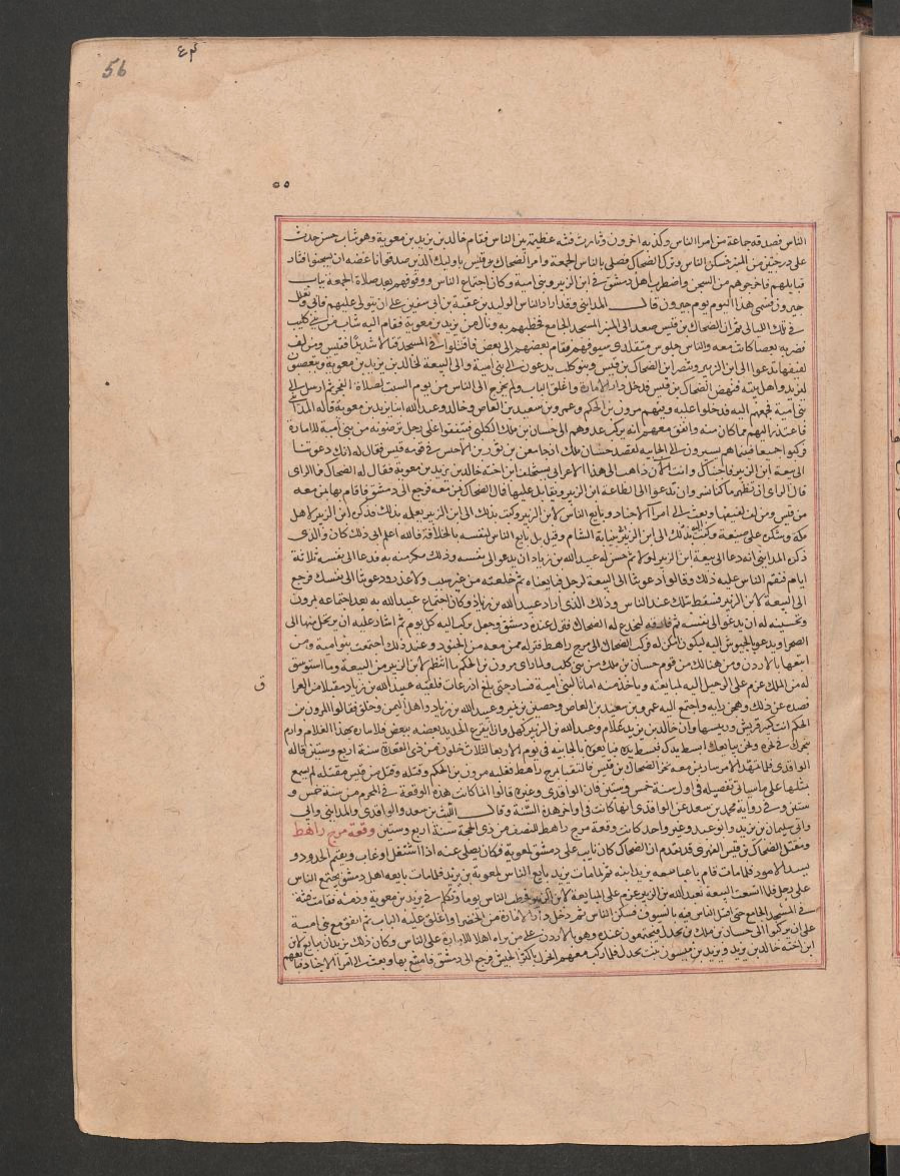 56
٥٥
الناس فصدقه جماعة من امرا الناس وكذبه اخرون وثارت فتنة عظيمة بين الناس فقام خالد بن يزيد بن معوية وهو شاب حسن حدث
على درجتين من المنبر فسكن الناس ونزل الضحاك فصلى بالناس الجمعة وامر الضحاك بن قيس باوليك الذين صدقوا ان يسجنوا فثار
قبايلهم فاخرجوهم من السجن واضطرب اهل دمشق في ابن الزبير وبني امية وكان اجتماع الناس ووقوفهم بعد صلاة الجمعة بباب
جيرون فسمي هذا اليوم يوم جيرون قال المدايني وقد اراد الناس الوليد بن عقبة بن ابي سفين على ان يتولى عليهم فابى
في تلك الليالي ثم ان الضحاك بن قيس صعد الى المنبر المسجد الجامع فخطبهم به ونال من يزيد بن معوية فقام اليه شاب من بني كليب
فضربه بعصا كانت معه والناس جلوس متقلدي سيوفهم فقام بعضهم الى بعض فاقتتلوا في المسجد قتالا شديدا فقيس ومن لف
لفيفها يدعوا الى ابن الزبير وينصر ابن الضحاك بن قيس وبنو كلب يدعون الى بني امية والى البيعة لخالد بن يزيد بن معوية ويتعصبون
ليزيد واهل بيته فنهض الضحاك بن قيس فدخل دار الامارة واغلق الباب ولم يخرج الى الناس من يوم السبت لصلاة الفجر ثم ارسل الى
بني امية فجمعهم اليه فدخلوا عليه وفيهم مرون بن الحكم وعمرو بن سعيد بن العاص وخالد وعبد الله ابنا يزيد بن معوية قاله المدايني
فاعتذر اليهم مما كان منه واتفق معهم انه يركب عدوهم الى حسان بن ملك الكلبي فيتفقوا على رجل يرضونه من بني امية للامارة
فركبوا جميعا فبينما هم يسيرون الى الجابية لقصد حسان بن ملك اذ جا معن بن ثور بن الاخنس في قومه قيس فقال له انك دعوتنا
الى بيعة ابن الزبير فاجبناك وانت الان ذاهب الى هذا الاعرابي يستخلف ابن اخته خالد بن يزيد بن معوية فقال له الضحاك فما الراي
قال الراي ان تظهر ما كنا نسر وان تدعوا الى الطاعة ابن الزبير وتقاتل عليها فمال الضحاك بمن معه فرجع الى دمشق فاقام بها بمن معه
من قيس ومن لف لفيفها وبعث الى امرا الاجناد وبايع الناس لابن الزبير وكتب بذلك الى ابن الزبير يعلمه بذلك فذكره ابن الزبير لاهل
مكة وشكره على صنيعه وكتب اليه بنيابة الشام وقيل بل بايع الناس لنفسه بالخلافة فالله اعلم اي ذلك كان والذي
ذكره المدايني انه دعا الى بيعة ابن الزبير اولا ثم حسن له عبيد الله بن زياد ان يدعو الى نفسه وذلك مكر منه به فدعا الى نفسه ثلاثة
ايام فنقم الناس عليه ذلك وقالوا دعوتنا الى البيعة لرجل فبايعناه ثم خلعته من غير سبب ولا عذر ودعوتنا الى نفسك فرجع
الى البيعة لابن الزبير فسقط بذلك عند الناس وذلك الذي اراد عبيد الله بن زياد وكان اجتماع عبيد الله به بعد اجتماعه بمرون
وتحسينه له ان يدعو الى نفسه ثم فارقه ليخدع له الضحاك فنزل عنده دمشق وجعل يركب اليه كل يوم ثم اشار عليه ان يخرج منها الى
الصحرا ويدعو بالجيوش اليه ليكون امكن له فركب الضحاك الى مرج راهط فنزله بمن معه من الجنود وعند ذلك اجتمعت بنو امية ومن
اتبعها بالاردن ومن هنالك من قوم حسان بن ملك من بني كلب ولما راى مرون بن الحكم ما انتظم لابن الزبير من البيعة وما استوسق
له من الملك عزم على الرحيل اليه لمبايعته وياخذ منه امانا لبني امية فسار حتى بلغ اذرعات فلقيه عبيد الله بن زياد مقبلا من العراق
فصده عن ذلك وهجن رايه واجتمع اليه عمرو بن سعيد بن العاص وحصين بن نمير وعبيد الله بن زياد واهل اليمن وخلق فقالوا لمرون بن
الحكم انت كبير قريش ورييسها وان خالد بن يزيد غلام وعبد الله بن الزبير كهل وانما يقرع الحديد بعضه ببعض فلا تباره بهذا الغلام وارم
بنحرك في نحره ونحن نبايعك ابسط يدك فبسط يده فبايعوه بالجابية في يوم الاربعا لثلاث خلون من ذي القعدة سنة اربع وستين قاله
الواقدي فلما تمهد له الامر سار بمن معه نحو الضحاك بن قيس فالتقيا بمرج راهط فغلبه مرون بن الحكم وقتله وقتل من قيس مقتلة لم يسمع
بمثلها على ما سياتي تفصيله في اول سنة خمس وستين فان الواقدي وغيره قالوا انما كانت هذه الوقعة في المحرم من سنة خمس و
ستين وفي رواية محمد بن سعد عن الواقدي انها كانت في اواخر هذه السنة وقال الليث بن سعد والواقدي والمدايني وابي
وابي سليمان بن يزيد وابو عبيد وغير واحد كانت وقعة مرج راهط للنصف من ذي الحجة سنة اربع وستين وقعة مرج راهط
ومقتل الضحاك بن قيس الفهري قد تقدم ان الضحاك كان نايب على دمشق لمعوية فكان يصلي عنه اذا اشتغل او غاب ويقيم الحدود و
يسد الامور فلما مات قام باعبا بيعة يزيد ابنه ثم لما مات يزيد بايع الناس لمعوية بن يزيد فلما مات بايعه اهل دمشق حتى يجتمع الناس
على رجل فلما اتسعت البيعة لعبد الله بن الزبير عزم على المبايعة لابن الزبير فخطب الناس يوما وتكلم في يزيد بن معوية وذمه فقامت فتنة
في المسجد الجامع حتى اقتتل الناس فيه بالسيوف فسكن الناس ثم دخل دار الامارة من الخضرا واغلق عليه الباب ثم اتفق مع بني امية
على ان يركبوا الى حسان بن ملك بن بحدل فيجتمعون عنده وهو بالاردن على من يراه اهلا للامارة على الناس وكان ذلك يريد ان يبايع لابن
ابن اخته خالد بن يزيد ويزيد بن ميسون بنت بحدل فلما ركب معهم انخزل باكثر الجيش فرجع الى دمشق فامتنع بها وبعث الى امرا الاجناد فبايعهم
ق